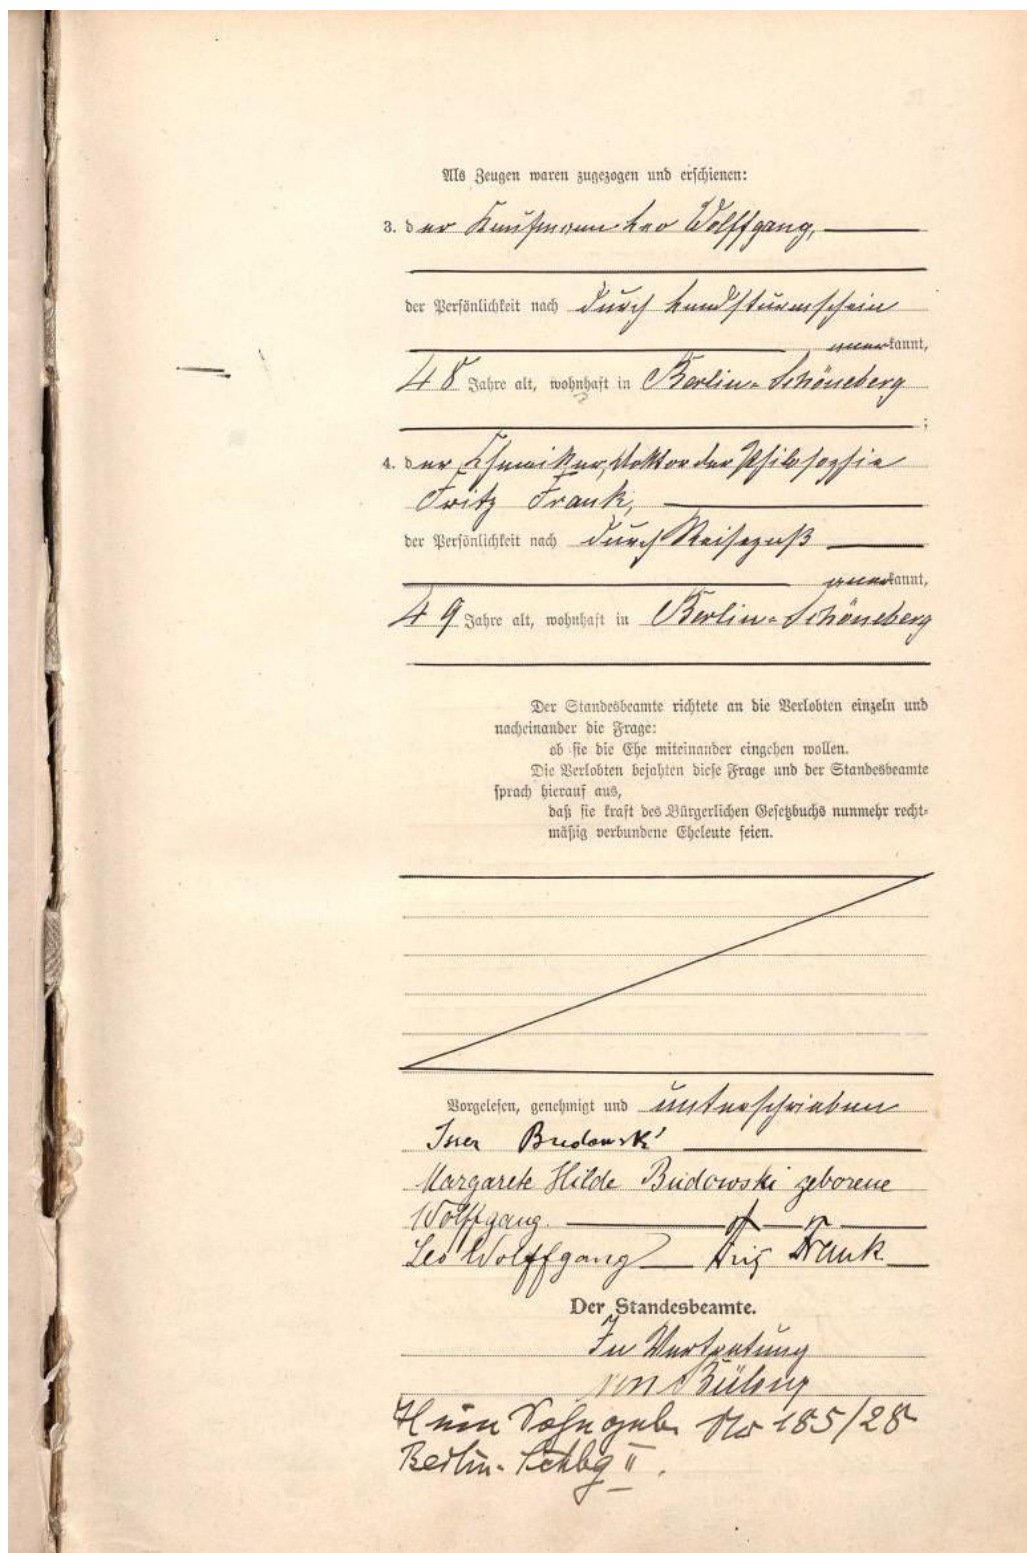 Als Zeugen waren zugezogen und erschienen:
3. der Kaufmann Leo Wolffgang,
der Persönlichkeit nach durch Landsturmschein
anerkannt,
48 Jahre alt, wohnhaft in Berlin-Schöneberg
;
4. der Chemiker, Doktor der Philosophie
Fritz Frank,
der Persönlichkeit nach durch Reisepaß
anerkannt,
49 Jahre alt, wohnhaft in Berlin-Schöneberg
Der Standesbeamte richtete an die Verlobten einzeln und
nacheinander die Frage:
ob sie die Ehe miteinander eingehen wollen.
Die Verlobten bejahten diese Frage und der Standesbeamte
sprach hierauf aus,
daß sie kraft des Bürgerlichen Gesetzbuchs nunmehr recht-
mäßig verbundene Eheleute seien.
Vorgelesen, genehmigt und unterschrieben
Isser Budowski
Margarete Hilde Budowski geborene
Wolffgang.
Leo Wolffgang Fritz Frank
Der Standesbeamte.
In Vertretung
von
ein Sohn geb. Nr 185/28
Berlin-Schbg II.